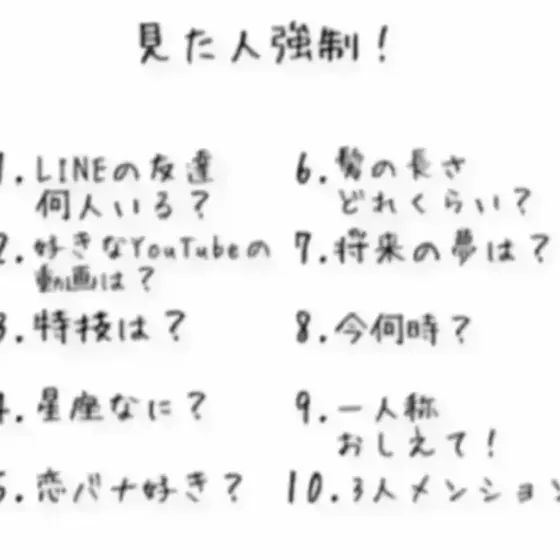 見た人強制！
1.LINEの友達
何人いる？
2.好きなYouTubeの
動画は？
3.特技は？
4.星座なに？
5.恋バナ好き？
6.髪の長さ
どれくらい？
7.将来の夢は？
8.今何時？
9.一人称
おしえて！
10.3人メンション